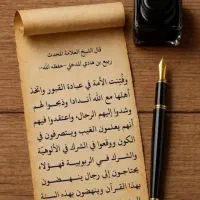 قال الشيخ العلامة المحدث
ربيع بن هادي المدخلي -حفظه الله-
وقُتِنت الأمة في عبادة القبور واتخذ
أهلها مع الله أندادا وذبحوا لهم
وشدوا إليهم الرحال، واعتقدوا فيهم
أنهم يعلمون الغيب ويتصرفون في
الكون ووقعوا في الشرك في الألوهيّة
والشرك في الربوبية فهؤلاء
يحتاجون إلى رجال ينهضون
بهذا القرآن وينهضون بهذه السنّة